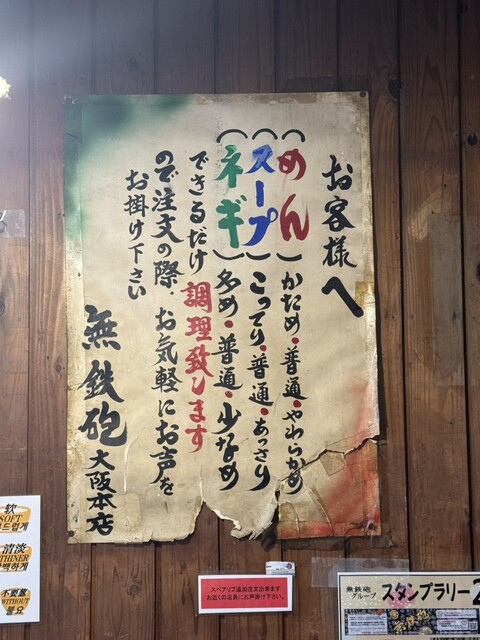 お客様へ
(めん)かため・普通・やわらかめ
(スープ)こってり・普通・あっさり
(ネギ)多め・普通・少なめ
できるだけ調理致します
ので注文の際、お気軽にお声を
お掛け下さい
無鉄砲大阪本店
软
SOFT
드럽게
清淡
THINNER
담백하게
不要
WITHOUT
필요
スペアリブ追加注文出来ます
お近くの店員にお声掛け下さい。
無鉄砲
グループ
スタンプラリー2